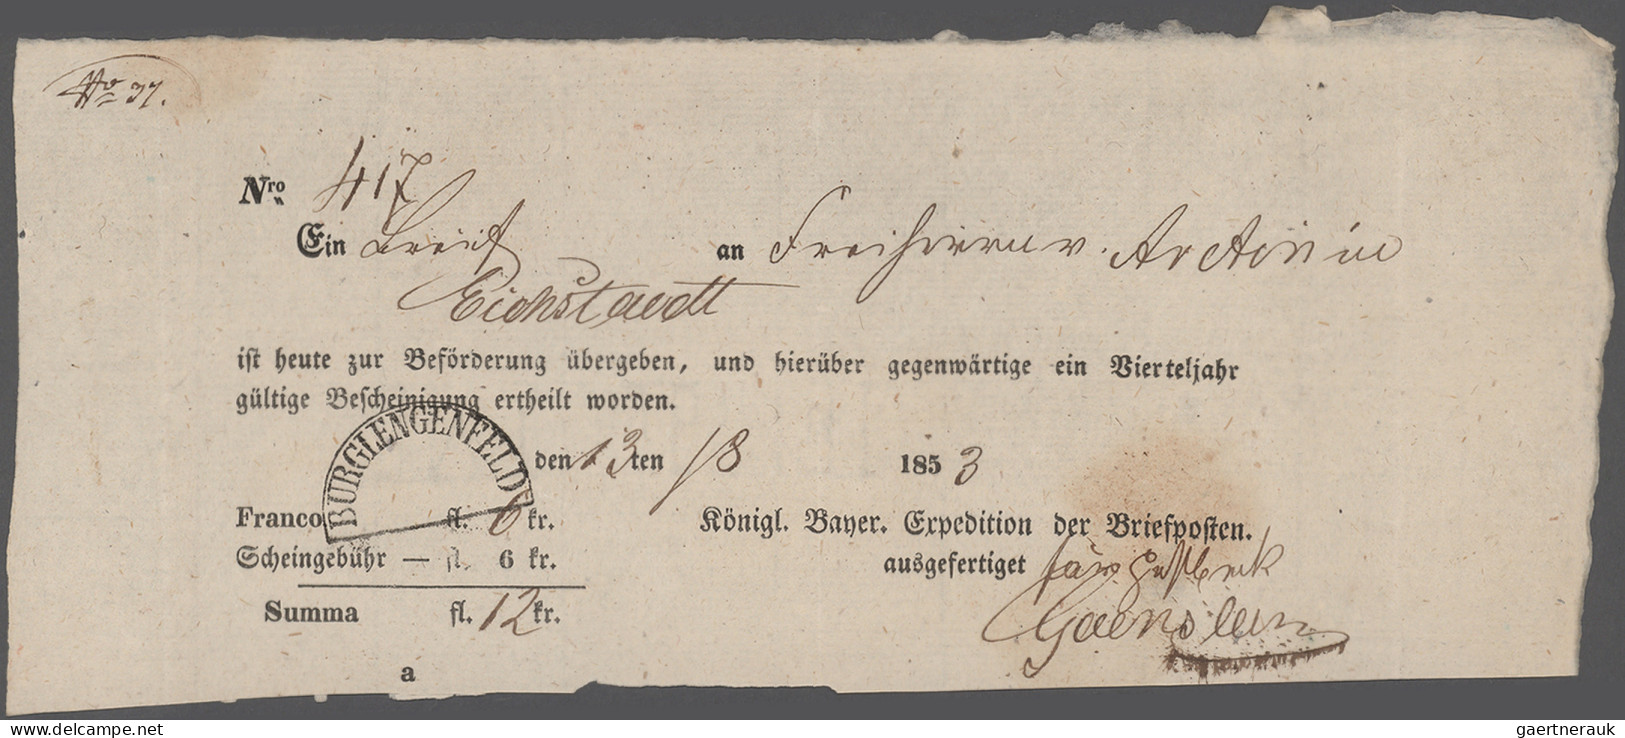 No 37.
Nro. 417
Ein Brief an Freiherrn v. Aretin in
Eichstaedt
ist heute zur Beförderung übergeben, und hierüber gegenwärtige ein Vierteljahr
gültige Bescheinigung ertheilt worden.
BURGLENGENFELD
den 13ten /8 1853
Franco fl. 6 kr.
Königl. Bayer. Expedition der Briefposten.
Scheingebühr — fl. 6 kr.
ausgefertiget
Summa fl. 12 kr.
Gaenslein
a
gaertnerauk